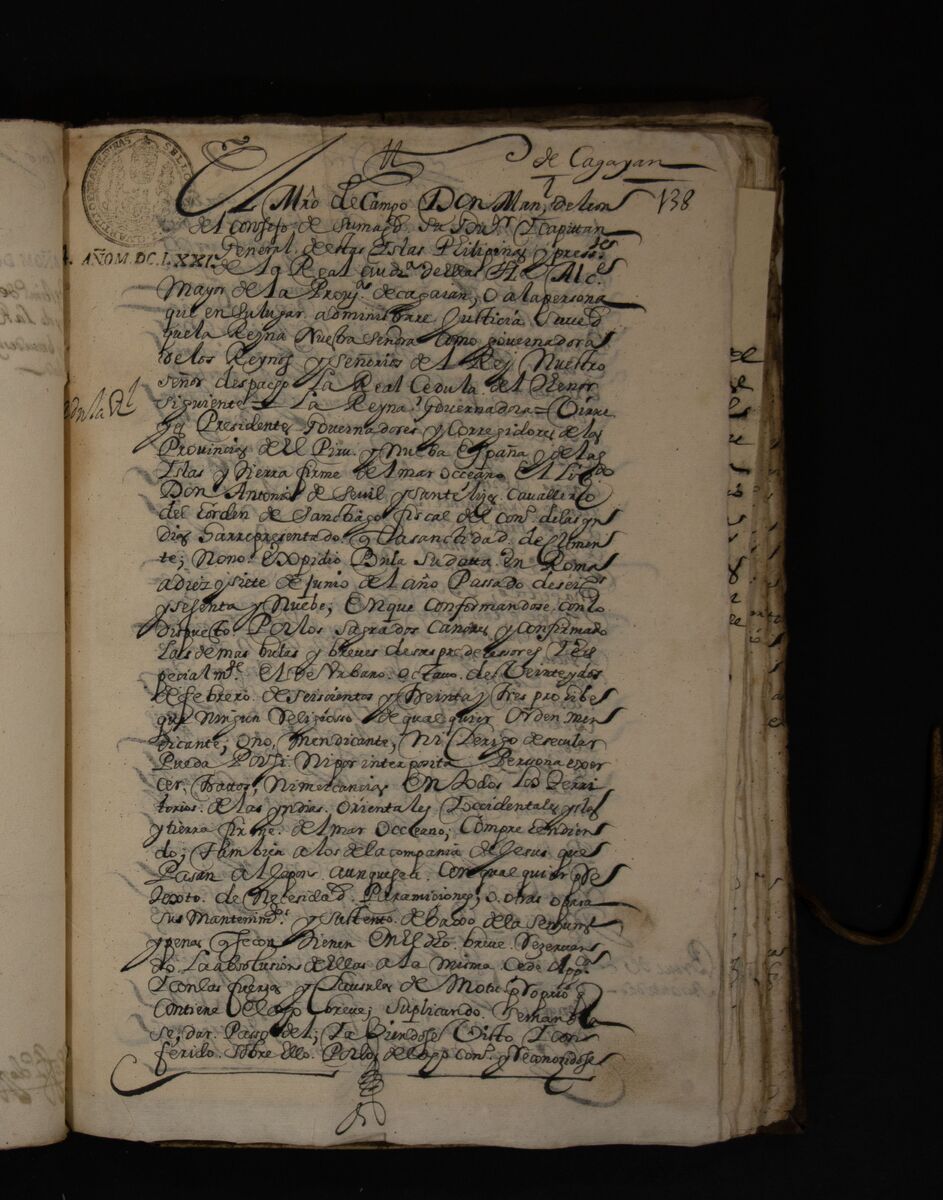 de Cagayan
138
SELLO
AÑO M.DC.LXXI.
El Mro de Campo Don Manl de leon
del consejo de su magd. su Govr. y capitan
General de estas Islas Philipinas y presste
de la Real audia. de ellas Al Alce
Mayor de la Prova. de cagaian, o a la persona
que en su lugar administrare Justicia Saved
que la Reyna Nuestra Señora como governadora
de los Reynos y señorios de el Rey Nuestro
señor despacho La Real Cedula del thenor
siguiente = La Reyna Governadora = Virre
yes Presidentes Governadores y Corregidores de las
Provincias de el Piru y Nueba España y de las
Islas y tierra firme del mar occeano el Licdo
Don Antonio de Sevil y Santelizes Cavallero
del orden de Sanctiago fiscal del cono. de las yn
dias ha rrepresentado q la sanctidad de Clemen
te, Nono expidio Bula su data en Roma
a diez y siete de junio del año Passado de seisos
y sesenta y Nuebe, en que conformandose con lo
dispuesto Por los sagrados canones y confirmado
las demas bulas y breves de sus predecessores y es
pecialmte el de Vrbano octavo de Veinte y dos
de febrero de seiscientos y treinta y tres prohibe
que Ningun Religioso de qualquier orden men
dicante, o no, Mendicante, Ni Clerigo de secular
Pueda Por si Ni por interposita Persona exer
cer, tratos, Ni mercancias en todos los Terri
torios de las yndias orientales y occidentales yslas
y tierra firme del mar occeano, comprehendien
do, tambien a los de la compania de Jesus que
Pasan al Japon aunque sea con qualquier pre
texto de Necesidad Para misiones, o, otras o para
sus mantenimtos y sustento debaxo de las sensuras
y penas q se contienen en el dho. breve reservan
do La absolucion de ellas a la misma cede appca
y con las fuerzas y clausulas de Motu proprio q
contiene el dho breve, suplicando se manda
se, dar Passo del, y aviendose Visto y con
ferido sobre ello Por los del dho cono. y reconozidose